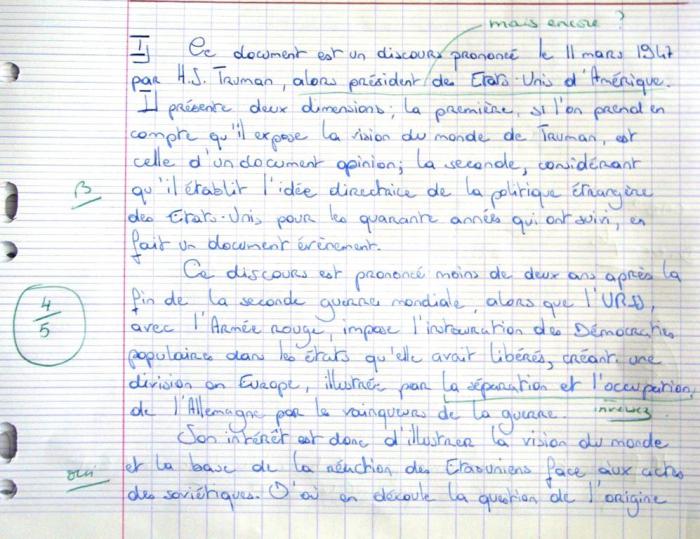 mais encore ?
I) Ce document est un discours prononcé le 11 mars 1947
par H.S. Truman, alors président des Etats-Unis d'Amérique.
Il présente deux dimensions; la première, si l'on prend en
compte qu'il expose la vision du monde de Truman, est
celle d'un document opinion; la seconde, considérant
B qu'il établit l'idée directrice de la politique étrangère
des Etats-Unis pour les quarante années qui ont suivi, en
fait un document évènement.
Ce discours est prononcé moins de deux ans après la
4/5 fin de la seconde guerre mondiale, alors que l'URSS,
avec l'Armée rouge, impose l'instauration des Démocraties
populaires dans les états qu'elle avait libérés, créant une
division en Europe, illustrée par la séparation et l'occupation,
de l'Allemagne par les vainqueurs de la guerre. inversez
Son intérêt est donc d'illustrer la vision du monde
oui et la base de la réaction des Etasuniens face aux actes
des soviétiques. D'où en découle la question de l'origine